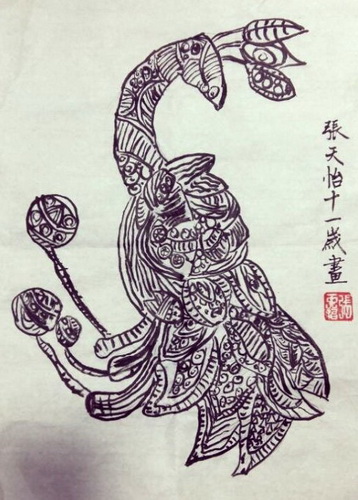 張天怡十一歲畫